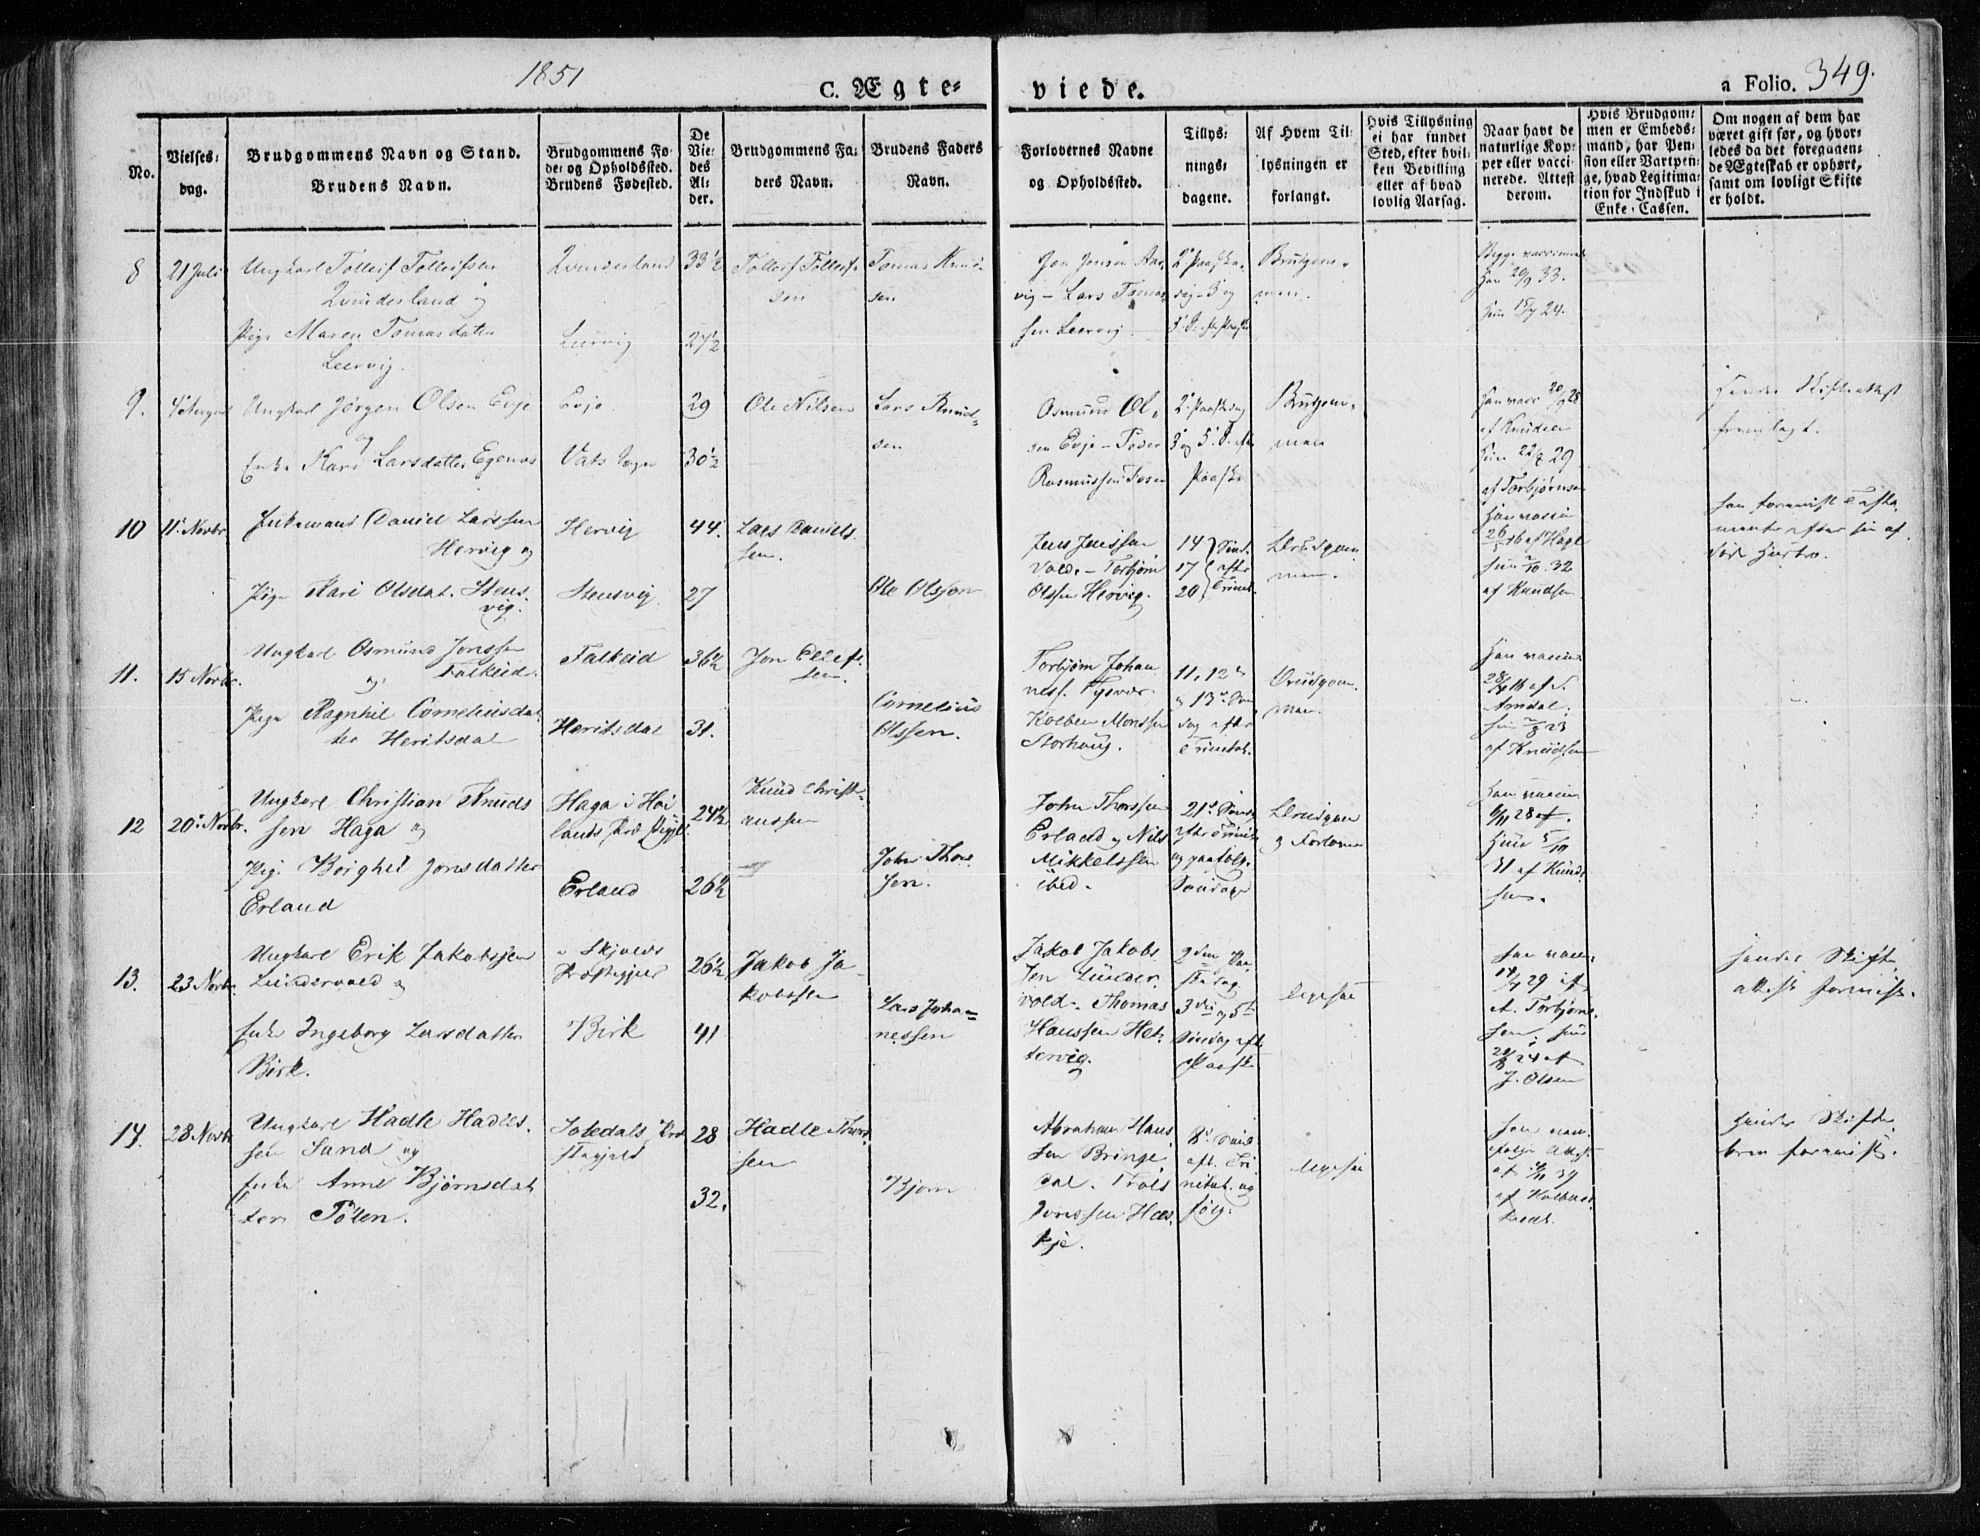 1851
C. Ægte-
viede.
a Folio. 349.
No.
Vielses-
dag.
Brudgommens Navn og Stand.
Brudens Navn.
Brudgommens Fø-
de- og Opholdssted.
Brudens Fødested.
De
Vie-
des
Al-
der.
Brudgommens Fa-
ders Navn.
Brudens Faders
Navn.
Forlovernes Navne
og Opholdssted.
Tillys-
nings-
dagene.
Af Hvem Til-
lysningen er
forlangt.
Hvis Tillysning
ei har fundet
Sted, efter hvil-
ken Bevilling
eller af hvad
lovlig Aarsag.
Naar havt de
naturlige Kop-
per eller vacci-
nerede. Attest
derom.
Hvis Brudgom-
men er Embeds-
mand, har Pen-
sion eller Vartpen-
ge, hvad Legitima-
tion for Indskud i
Enke-Cassen.
Om nogen af dem har
været gift før, og hvor-
ledes da det foregaaen-
de Ægteskab er ophørt,
samt om lovligt Skifte
er holdt.
8
21 Juli
Ungkarl Tolleif Tolleifsen
Qvinderland og
Pige Maren Tomasdatter
Leervig.
Qvinderland
Leervig
33½
27½
Tolleif Tolleif-
sen
Tomas Knud-
sen
Jon Jonsen
vig - Lars Tomas-
sen Leervig
Brudgom-
men.
Begge
Han 20/9 33.
Hun 15/7 24.
9.
Ungkarl Jørgen Olsen Evje
og
Enke Kari Larsdatter Egenes
Evje
Vats Sogn
29
30½
Ole Nilsen
Lars Knud-
sen
Osmund Ol-
sen Evje - Peder
Rasmussen
2. Paaskedag
3 og 5. S. eft.
Paaske
Brudgom-
men
Han vacc 20/9 28
af Knudsen
Hun 22/7 29
af Torbjørnsen
Hendes Skifteattest
fremlagt.
10
11. Novbr.
Enkemand Daniel Larssen
Hervig og
Pige Kari Olsdat. Stens-
vig.
Hervig
Stensvig
44.
27
Lars Daniels-
sen.
Ole Olsson
Jens Jenssen
Vold. - Torbjørn
Olssen Hervig.
14 Sønd.
17 eftr
20 Trinit.
Brudgom-
men.
Han vaccin
26/5 16 af Hagl
Hun 2/10. 32
af Knudsen
Han forevist Testa-
mente efter sin af-
døde Hustro.
11.
15 Novbr.
Ungkarl Osmund Jonssen
Falkeid.
og
Pige Ragnhil Corneliusdat
ter Heritsdal
Falkeid
Heritsdal
36½
31.
Jon Ellef-
sen.
Cornelius
Olssen.
Torbjørn Johan
ness. Tysvær
Kolben Monssen
Storhoug.
11, 12te
og 13de Søn
dag efter
Trinitat.
Brudgom-
men.
Han vaccin
af S.
Arndal;
hun 23
af Knudsen
12
20. Novbr.
Ungkarl Christian Knuds
sen Haga og
Pig. Borghel Jonsdatter
Erland
Haga i Høi
lands Præstegjl.
Erland
24½
26½
Knud Christi-
anssen
John Thors
sen.
John Thorssen
Erland og Nils
Mikkelssen
ibid.
21de Sønd.
efter Trinit.
og paafølg.
Søndage
Brudgom
og Forlovne
Han vaccin
6/11 28 af.
Hun 5/10
31 af Knud-
sen.
13.
23 Novbr.
Ungkarl Erik Jakobsen
Lundervold og
Enke Ingeborg Larsdatter
Birk.
Skjolds
Præstegjeld
Birk
26½
41
Jakob Ja-
kobssen
Lars Joha-
nessen
Jakob Jakobs
sen Lunder
vold. - Thomas
Hanssen Het-
tervig.
2den Paa
skedag
3die og 5te
Søndag efter
Paaske
ligesaa
Han vacc.
14/7 29 af
A. Torbjørn-
sen, hun
24 af
J. Olsen
Hendes Skift
attest forevist.
14.
28 Novbr.
Ungkarl Hadle Hadles-
sen Sand og
Enke Anne Bjørnsdat
ter Tølen.
Jeledals Præ
stegjeld
28
32.
Hadle Thors
sen
Bjørn
Abraham Hans
sen Bringe
dal. Trols
Jonssen Hes-
kje.
8. Sønd
eft. Tri
nitat. og
følg.
ligesaa
Han vacc.
ifølge Attest
af 39
af
Hendes Skifte
brev forevist.